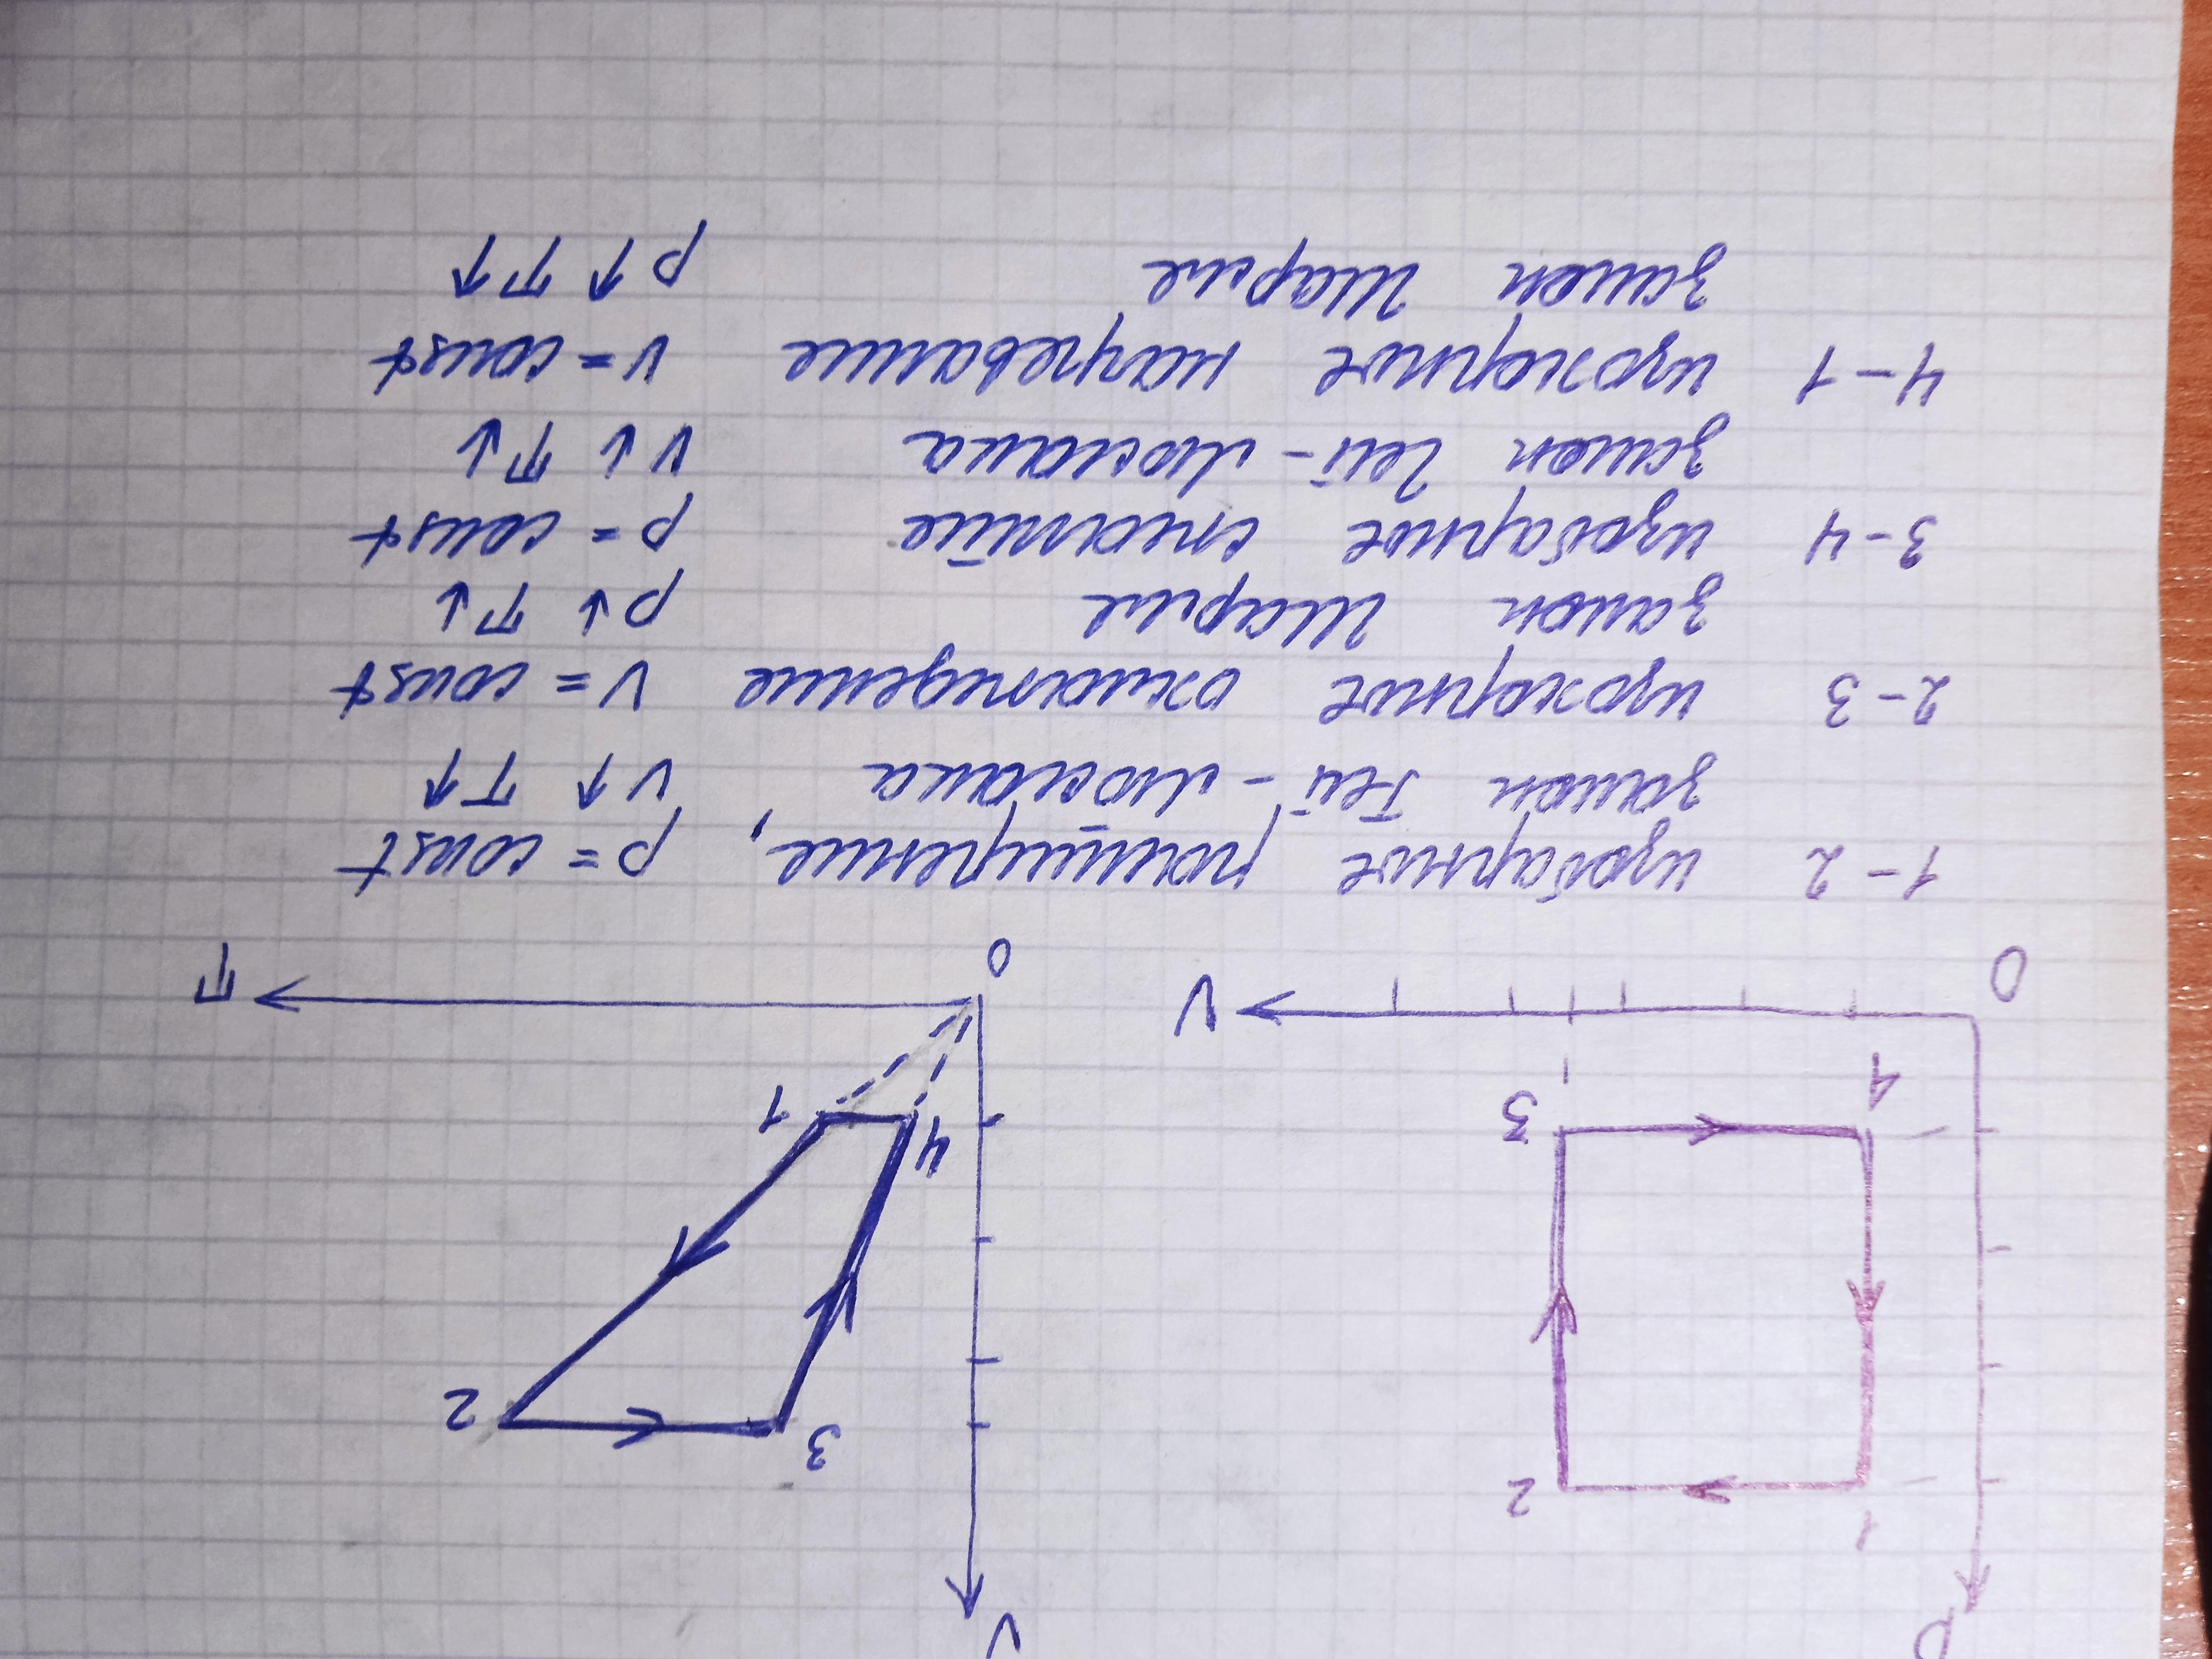 p
V
1
2
3
2
4
3
4
1
0
V
0
T
1-2 изобарное расширение, p = const
закон Гей-Люссака V↑ T↑
2-3 изохорное охлаждение V = const
закон Шарля p↓ T↓
3-4 изобарное сжатие p = const
закон Гей-Люссака V↓ T↓
4-1 изохорное нагревание V = const
закон Шарля p↑ T↑